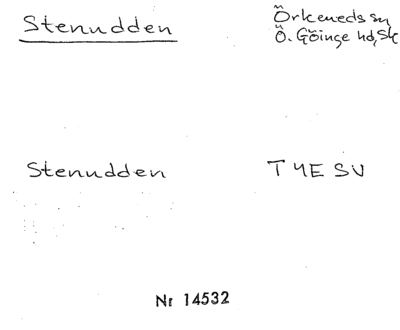 Stenudden
Örkeneds sn
Ö. Göinge hd, Sk
Stenudden T 4E SV
Nr 14532